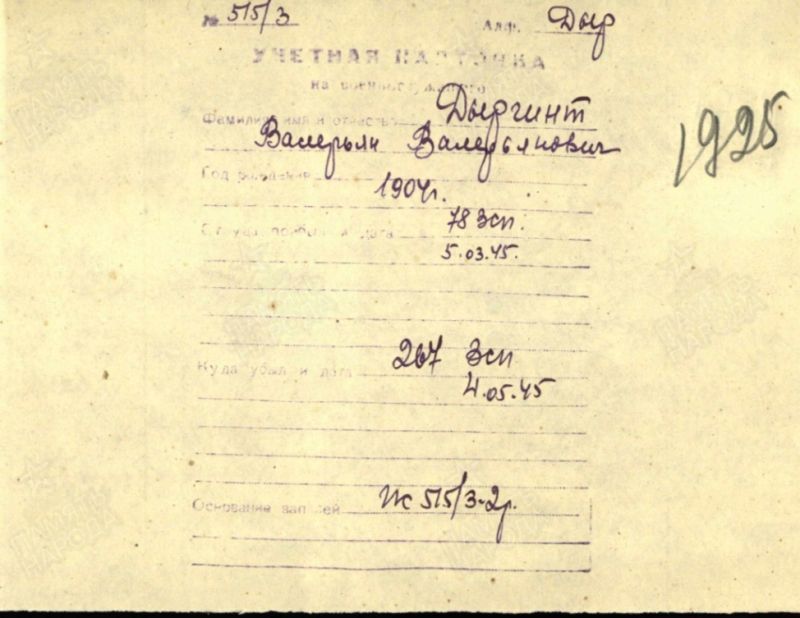 № 515/3 Алф. Дыр
УЧЕТНАЯ КАРТОЧКА
на военнослужащего
Фамилия, имя и отчество Дыргинт
Валерьян Валерьянович
1925
Год рождения
1904г.
Откуда прибыл и дата 78 Зсп.
5.03.45.
Куда убыл и дата 267 Зсп
4.05.45
Основание записей 515/3-2р.
ПАМЯТЬ НАРОДА